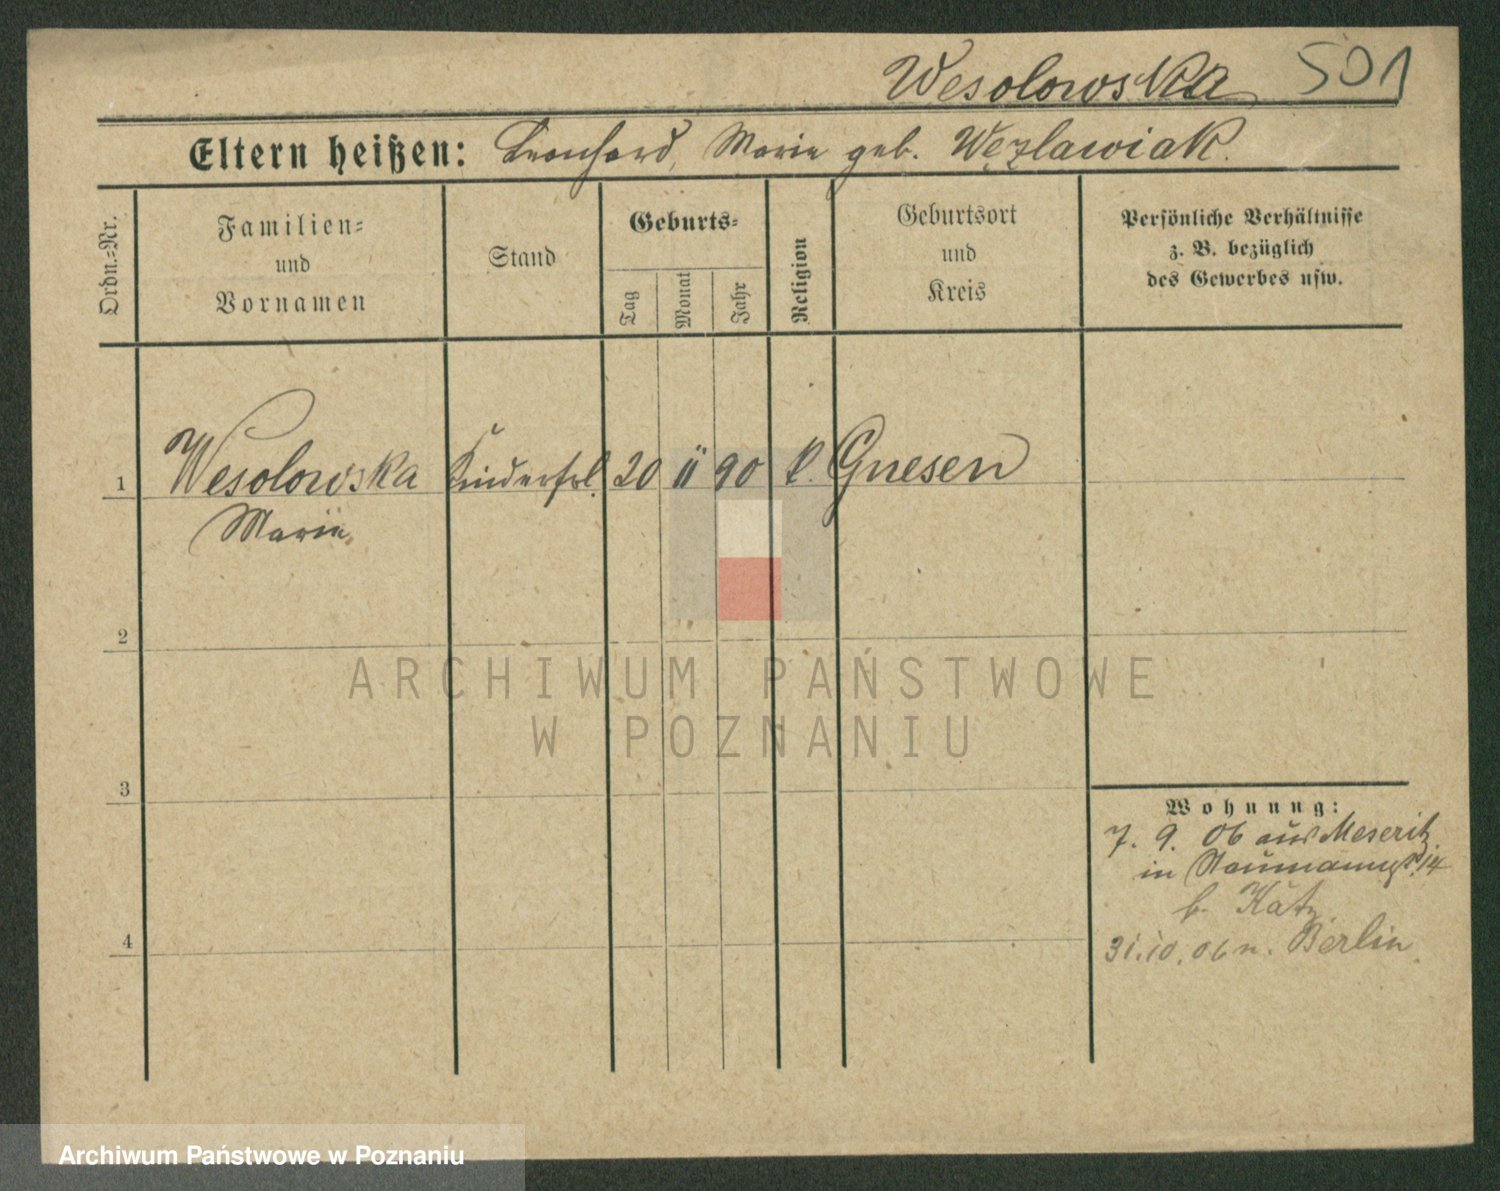 Wesolowska 501
Eltern heißen: Leonhard, Marie geb. Węzlawiak.
Ordn.-Nr.
Familien-
und
Vornamen
Stand
Geburts-
Tag
Monat
Jahr
Religion
Geburtsort
und
Kreis
Persönliche Verhältnisse
z. B. bezüglich
des Gewerbes usw.
1 Wesolowska Kinderfrl. 20 11 90 k. Gnesen
Marie
2
3
4
Wohnung:
7. 9. 06 aus Meseritz
in Naumannst. 14
b. Kätz
31.10.06 n. Berlin
ARCHIWUM PAŃSTWOWE
W POZNANIU
Archiwum Państwowe w Poznaniu